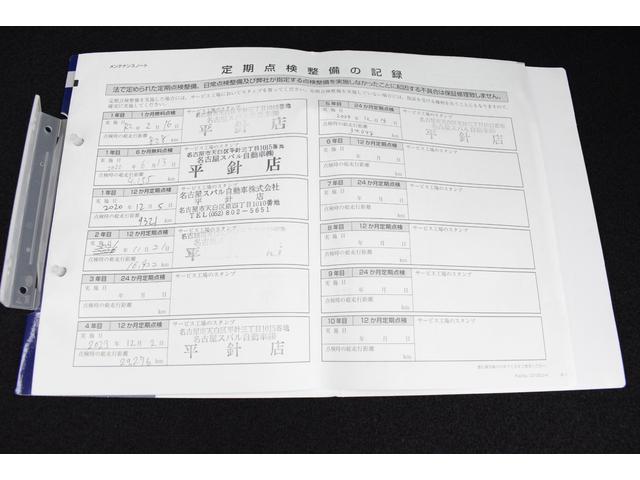 メンテナンスノート
定期点検整備の記録
法で定められた定期点検整備、日常点検整備及び弊社が指定する点検整備を実施しなかったことに起因する不具合は保証修理致しません。
1年目 1か月無料点検
実施日 R2年2月16日
点検時の総走行距離
828 km
平針店
1年目 6か月無料点検
サービス工場のスタンプ
実施日 2020年6月13日
点検時の総走行距離
4,155 km
名古屋市天白区平針三丁目1015番地
名古屋スバル自動車㈱
平針店
1年目 12か月定期点検
サービス工場のスタンプ
実施日
2020年12月5日
点検時の総走行距離
9321 km
名古屋スバル自動車株式会社
平針店
名古屋市天白区原四丁目1010番地
TEL(052)802-5651
2年目 12か月定期点検
サービス工場のスタンプ
実施日
年11月21日
点検時の総走行距離
16,922 km
平針
3年目 24か月定期点検
サービス工場のスタンプ
実施日
年 月 日
点検時の総走行距離
km
4年目 12か月定期点検
サービス工場のスタンプ
実施日
2023年12月2日
点検時の総走行距離
29,296 km
名古屋市天白区平針三丁目1015番地
名古屋スバル自動車㈱
平針店
5年目 24か月定期点検
実施日
点検時の総走行距離
km
平針店
6年目 12か月定期点検
サービス工場のスタンプ
実施日
年 月 日
点検時の総走行距離
km
7年目 24か月定期点検
サービス工場のスタンプ
実施日
年 月 日
点検時の総走行距離
km
8年目 12か月定期点検
サービス工場のスタンプ
実施日
年 月 日
点検時の総走行距離
km
9年目 24か月定期点検
サービス工場のスタンプ
実施日
年 月 日
点検時の総走行距離
km
10年目 12か月定期点検
サービス工場のスタンプ
実施日
年 月 日
点検時の総走行距離
km